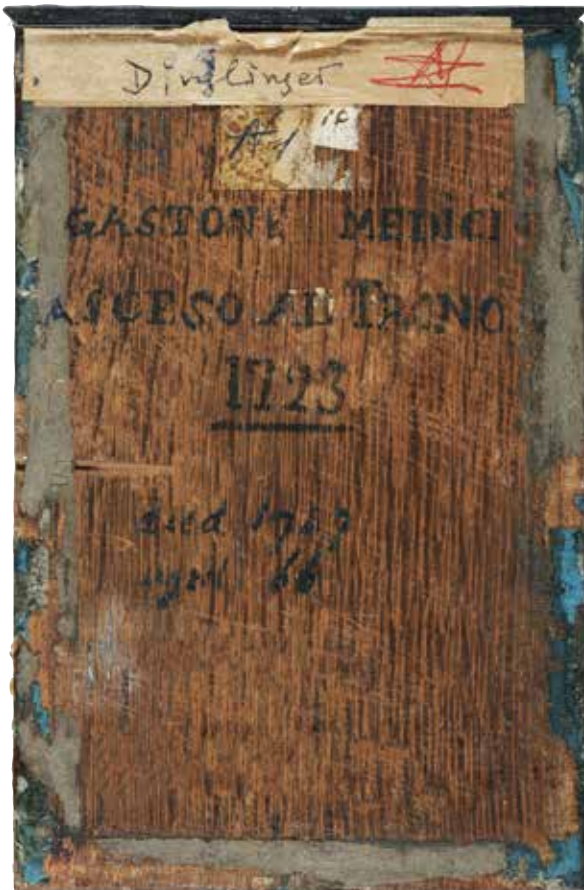 Dinglinger
A1
GASTONE MEDICI
ASCESO AL TRONO
1723
died 1737
aged 66